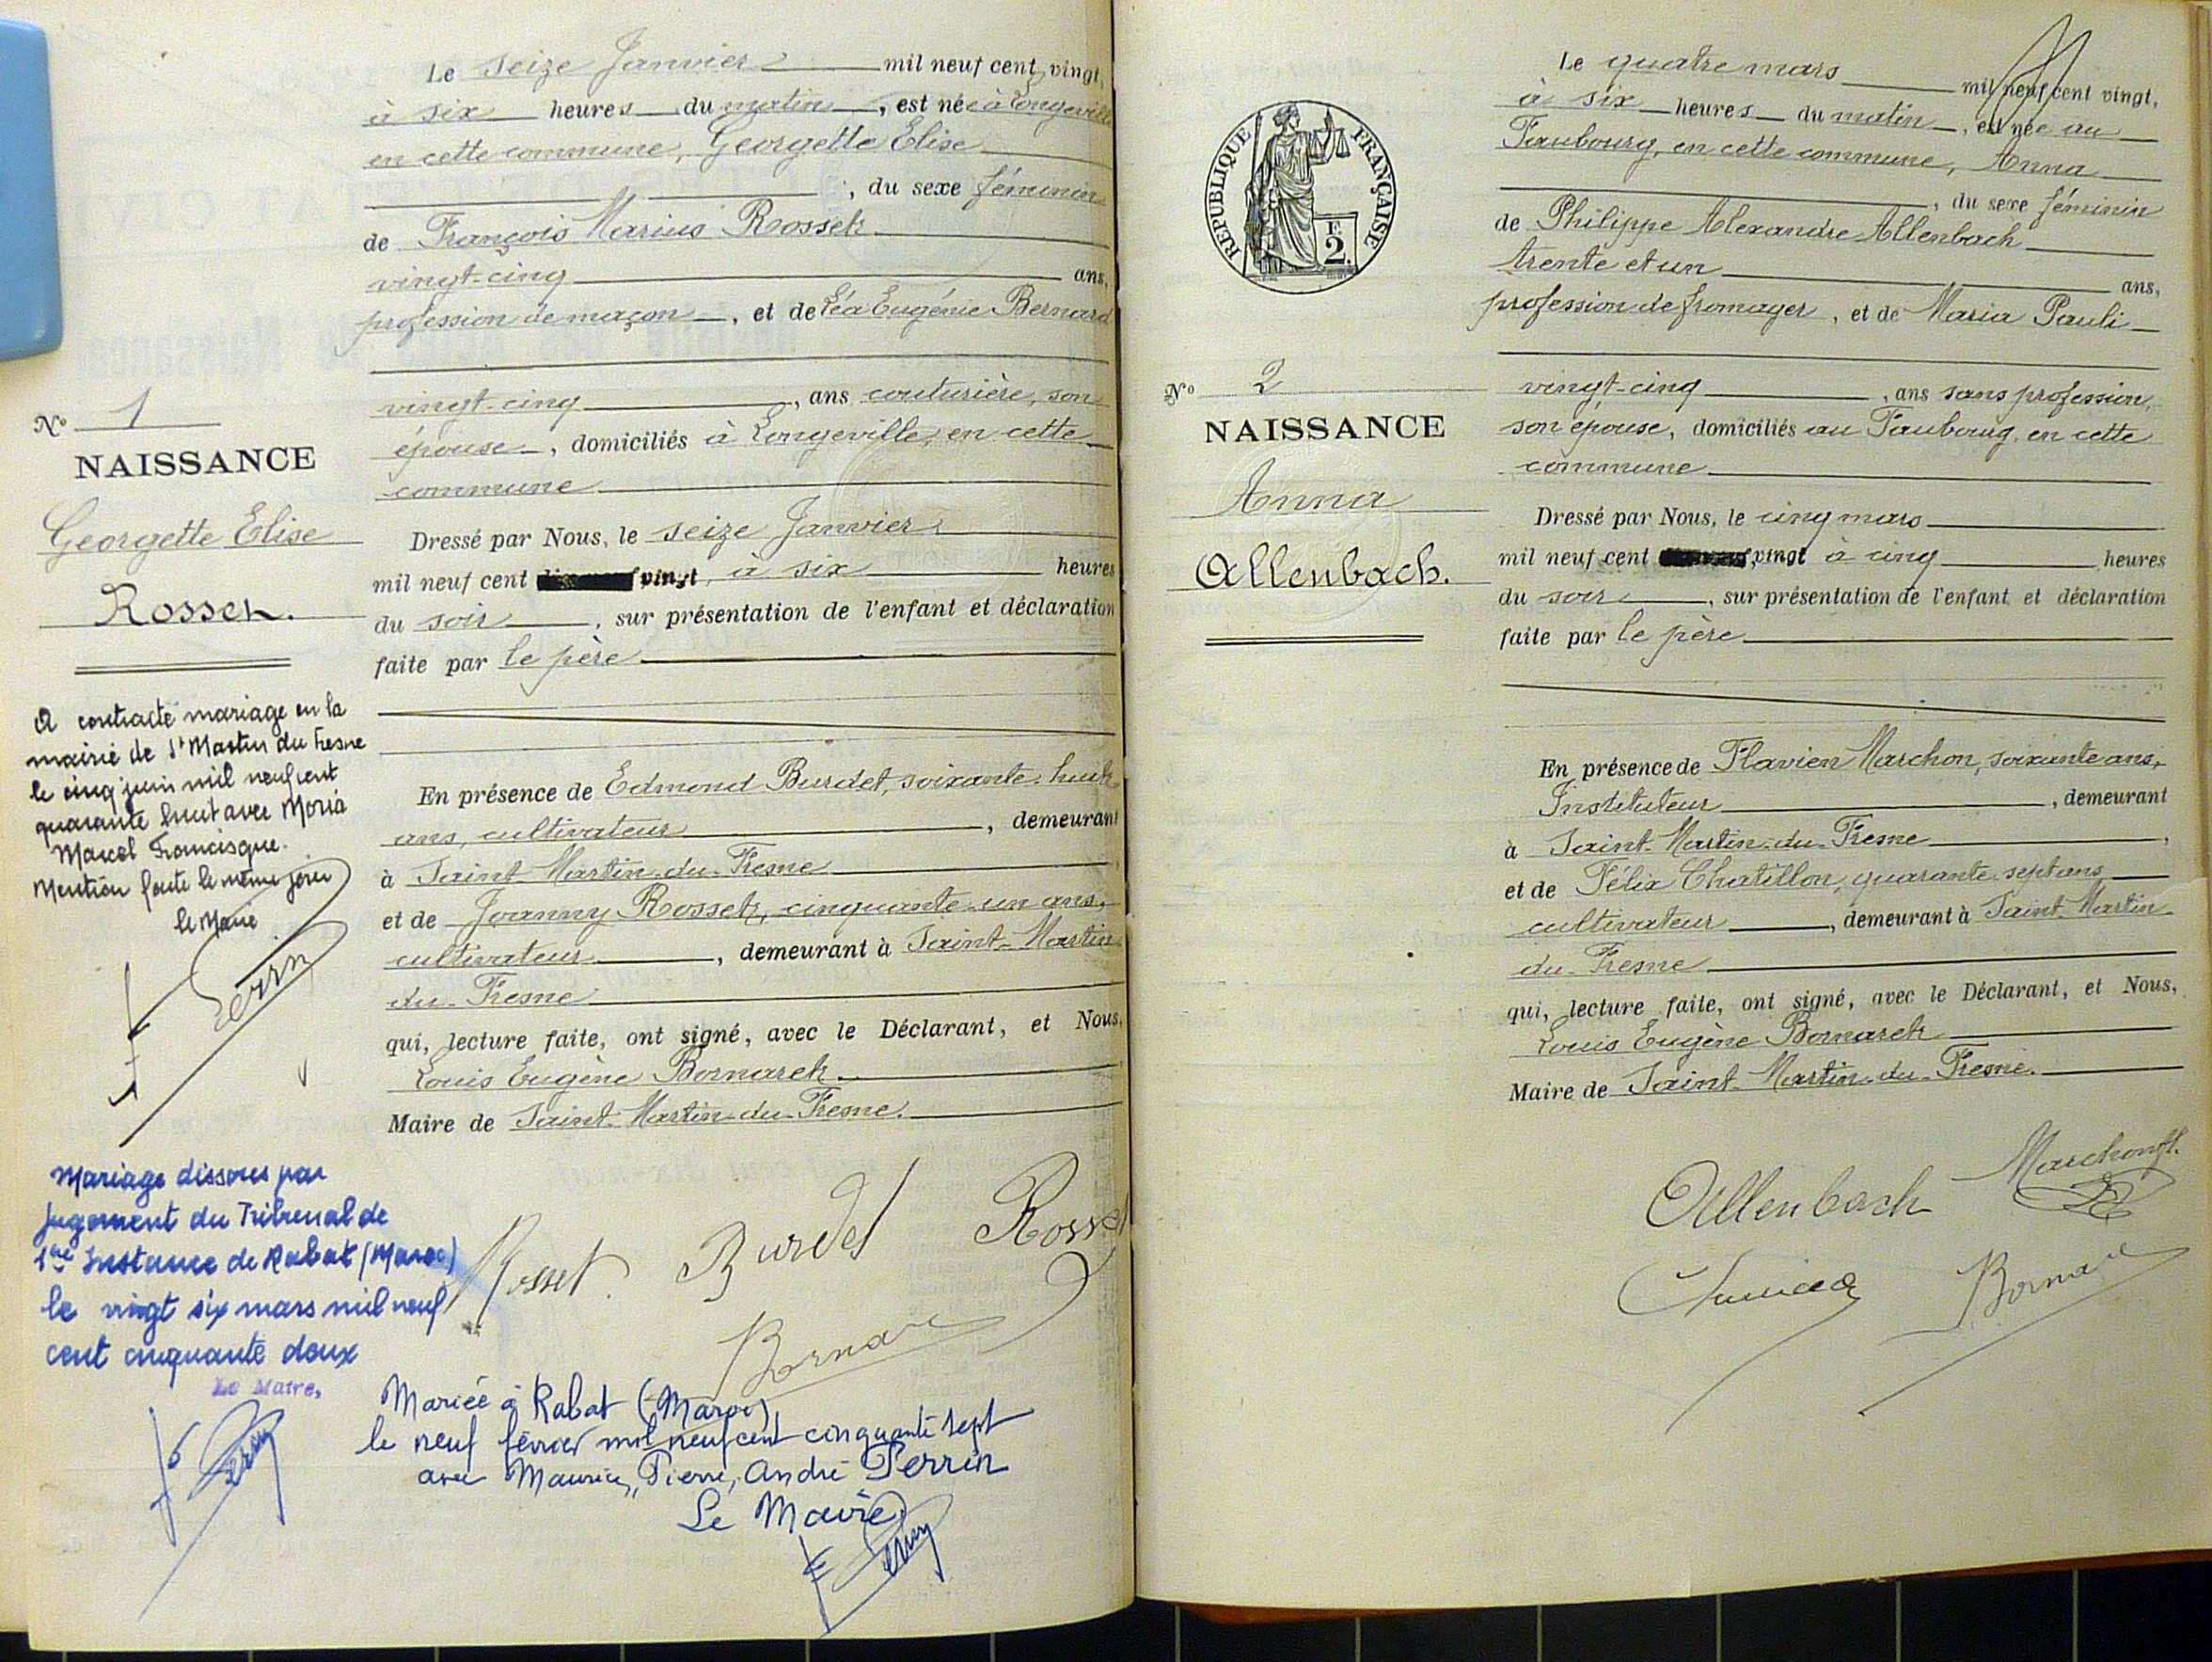 Le seize Janvier mil neuf cent vingt,
à six heures du matin, est née à Longeville
en cette commune, Georgette Elise
, du sexe féminin
de François Marius Rosset
vingt-cinq ans,
profession de maçon, et de Léa Eugénie Bernard
vingt-cinq, ans couturière, son
épouse, domiciliés à Longeville, en cette
commune
Dressé par Nous, le seize Janvier
mil neuf cent vingt, à six heures
du soir, sur présentation de l'enfant et déclaration
faite par le père
En présence de Edmond Burdet, soixante-huit
ans, cultivateur, demeurant
à Saint-Martin-du-Fresne
et de Joanny Rosset, cinquante-un ans,
cultivateur, demeurant à Saint-Martin
du-Fresne
qui, lecture faite, ont signé, avec le Déclarant, et Nous,
Louis Eugène Bornarel
Maire de Saint-Martin-du-Fresne.
No 1
NAISSANCE
Georgette Elise
Rosset.
A contracté mariage en la
mairie de St Martin du Fresne
le cinq juin mil neuf cent
quarante huit avec Moria
Marcel Francisque.
Mention faite le même jour
le Maire
Mariage dissous par
jugement du Tribunal de
1ère Instance de Rabat (Maroc)
le vingt six mars mil neuf
cent cinquante deux
Le Maire,
Rosset Burdet Rosset
Mariée à Rabat (Maroc)
le neuf février mil neuf cent cinquante sept
avec Maurice, Pierre, André Perrin
Le Maire
REPUBLIQUE FRANÇAISE
F.
2.
No 2
NAISSANCE
Anna
Allenbach.
Le quatre mars mil neuf cent vingt,
à six heures du matin, est née au
Faubourg, en cette commune, Anna
, du sexe féminin
de Philippe Alexandre Allenbach
trente et un ans,
profession de fromager, et de Maria Pauli
vingt-cinq, ans sans profession,
son épouse, domiciliés au Faubourg, en cette
commune
Dressé par Nous, le cinq mars
mil neuf cent vingt à cinq heures
du soir, sur présentation de l'enfant et déclaration
faite par le père
En présence de Flavien Marchon, soixante ans,
Instituteur, demeurant
à Saint-Martin-du-Fresne,
et de Félix Chatillon, quarante-sept ans
cultivateur, demeurant à Saint-Martin
du-Fresne
qui, lecture faite, ont signé, avec le Déclarant, et Nous,
Louis Eugène Bornarel
Maire de Saint-Martin-du-Fresne.
Allenbach Marchon